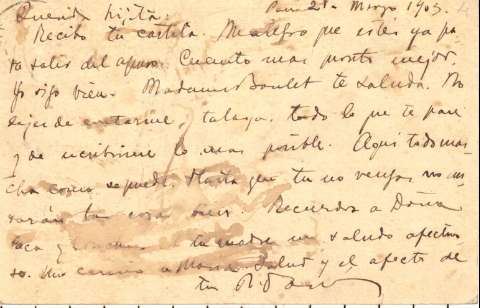 Querida hijita: Paris 28 - Marzo 1903.
Recibo tu cartita. Me alegro que estés ya pa
ra salir del apuro. Cuanto más pronto mejor.
Yo sigo bien. Madame Boulet te saluda. No
dejes de contarme, tataya, todo lo que te pase
y de escribirme lo más posible. Aquí todo mar
cha como se puede. Hasta que tu no vengas no
las cosas bien. Recuerdos a Doña
y a tu madre un saludo afectuo
so. Un cariño a María Salud y el afecto de
tu R. D